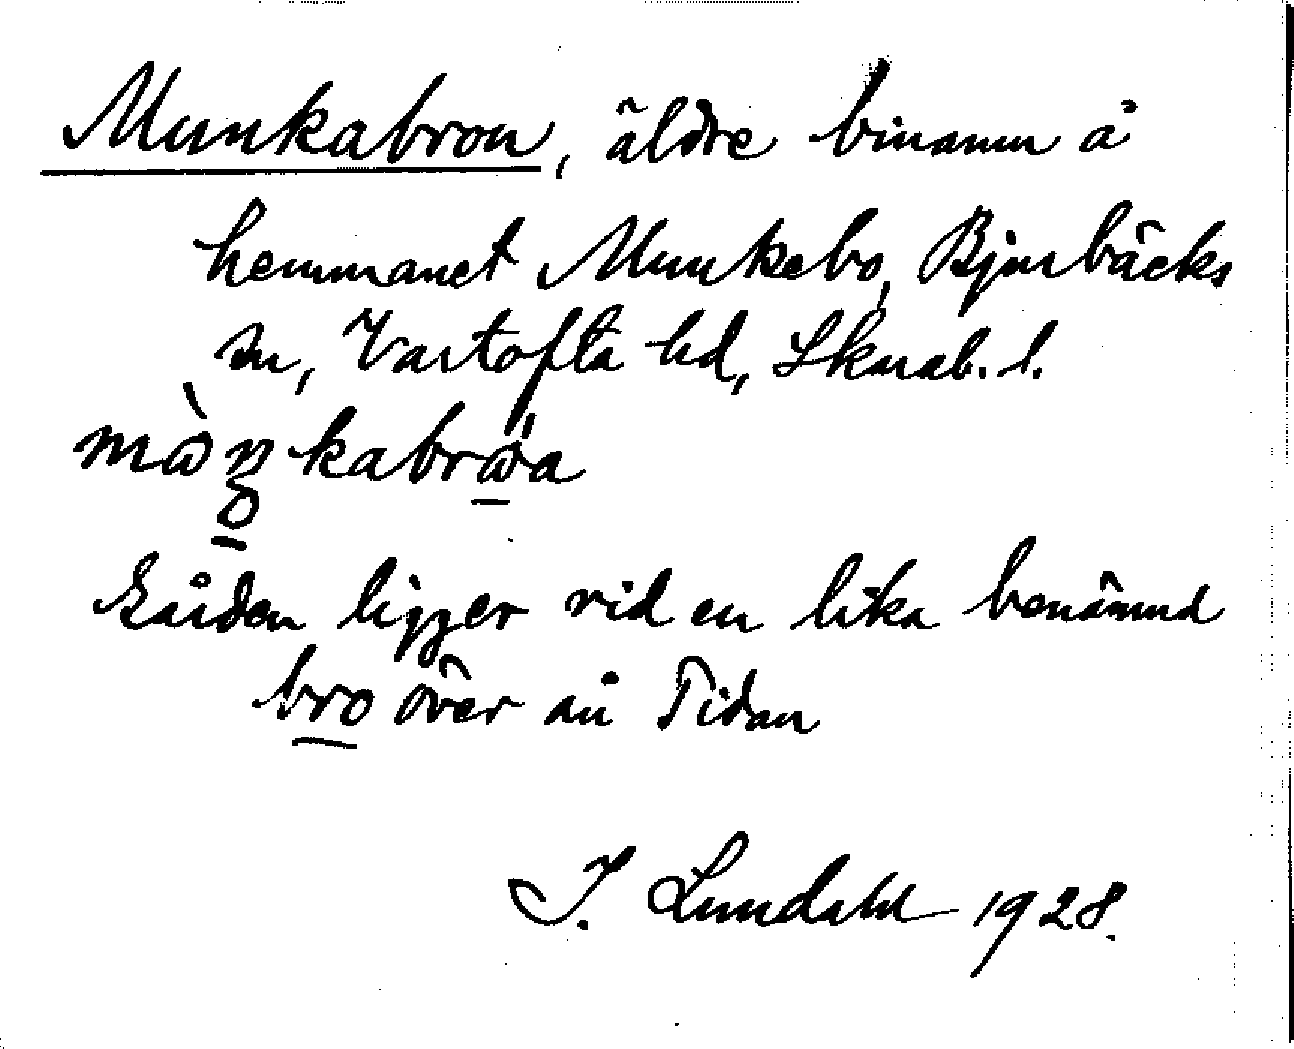 Munkabron, äldre binamn å
hemmanet Munkebo, Bjurbäcks
sn, Vartofta hd, Skarab. l.
Gården ligger vid en lika benämnd
bro över ån Tidan
I. Lundahl 1928.